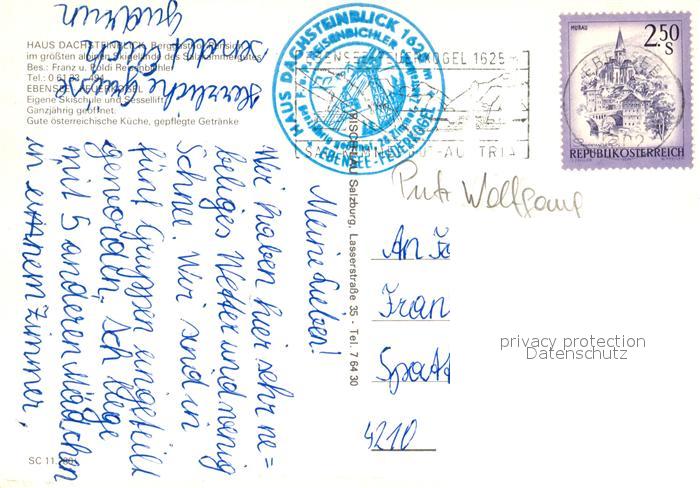 HAUS DACHSTEINBLICK, Berggasthof-Pension
im größten alpinen Skigelände des Salzkammergutes
Bes.: Franz u. Poldi Reisenbichler
Tel.: 0 61 33 - 494
EBENSEE-FEUERKOGEL
Eigene Skischule und Sessellift
Ganzjährig geöffnet.
Gute österreichische Küche, gepflegte Getränke
Meine Lieben!
Wir haben hier sehr ne=
beliges Wetter und wenig
Schnee. Wir sind in
fünf Gruppen eingeteilt
geworden. Ich liege
mit 5 anderen Mädchen
in einem Zimmer.
Herzliche Grüße
sendet Euch
Gudrun
HAUS DACHSTEINBLICK 1625 m
REISENBICHLER
EBENSEE-FEUERKOGEL
FEUERKOGEL 1625 m
MURAU
2.50
S
REPUBLIK ÖSTERREICH
EBENSEE
Salzburg, Lasserstraße 35 - Tel. 7 64 30
Putz Wolfgang
An Fa
Fran
Spatt
4210
privacy protection
Datenschutz